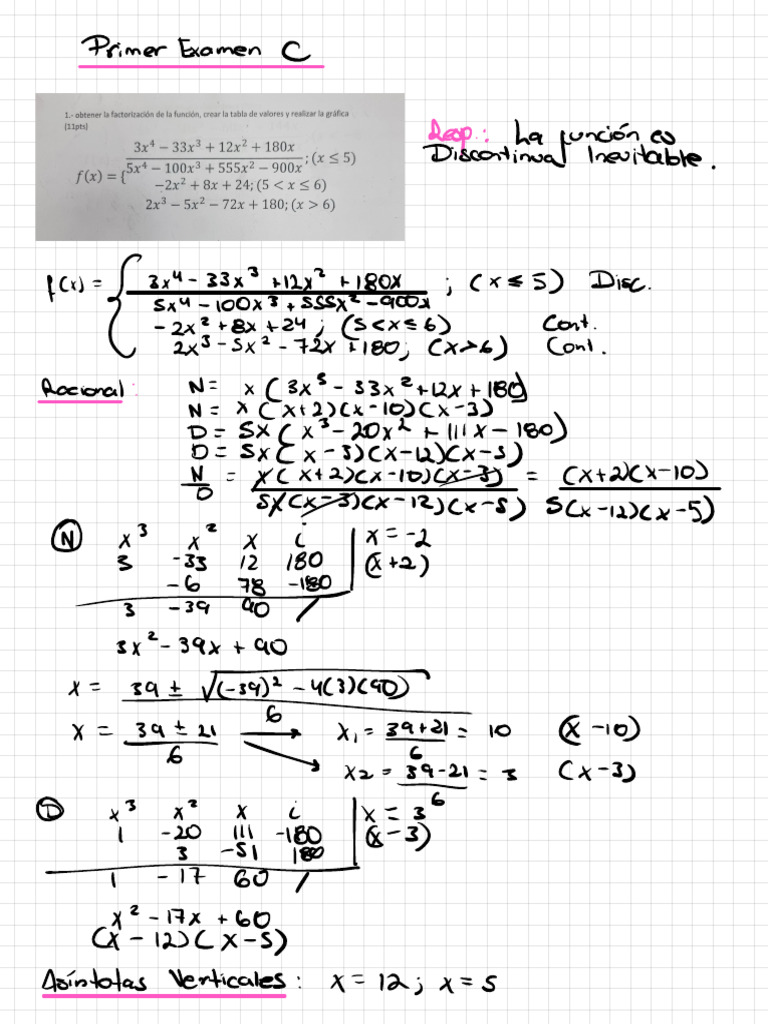 Primer Examen C
1.- obtener la factorización de la función, crear la tabla de valores y realizar la gráfica
(11pts)
f(x) = {
3x⁴ − 33x³ + 12x² + 180x
5x⁴ − 100x³ + 555x² − 900x ; (x ≤ 5)
−2x² + 8x + 24; (5 < x ≤ 6)
2x³ − 5x² − 72x + 180; (x > 6)
Resp.: La función es
Discontinua Inevitable.
f(x) = {
3x⁴ - 33x³ + 12x² + 180x
5x⁴ - 100x³ + 555x² - 900x ; (x ≤ 5) Disc.
- 2x² + 8x + 24 ; (5 < x ≤ 6) Cont.
2x³ - 5x² - 72x + 180; (x > 6) Cont.
Racional:
N = x (3x³ - 33x² + 12x + 180)
N = x (x+2)(x-10)(x-3)
D = 5x (x³ - 20x² + 111x - 180)
D = 5x (x - 3)(x-12)(x-5)
N/D = x(x+2)(x-10)(x-3) / 5x(x-3)(x-12)(x-5) = (x+2)(x-10) / 5(x-12)(x-5)
N x³ x² x i | x = -2
3 -33 12 180 | (x+2)
-6 78 -180
3 -39 90 /
3x² - 39x + 90
x = 39 ± √(-39)² - 4(3)(90) / 6
x = 39 ± 21 / 6 → x₁ = 39+21 / 6 = 10 (x -10)
x₂ = 39-21 / 6 = 3 (x-3)
D x³ x² x i | x = 3
1 -20 111 -180 | (x-3)
3 -51 180
1 -17 60 /
x² - 17x + 60
(x - 12)(x-5)
Asíntotas Verticales: x = 12; x = 5